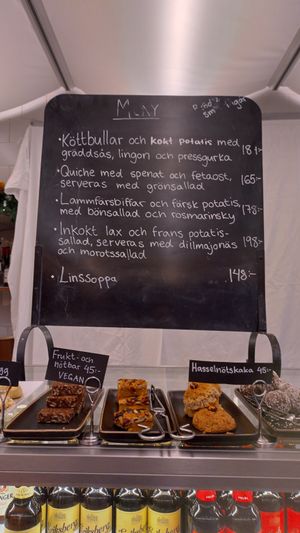 MENY
• Köttbullar och kokt potatis med
gräddsås, lingon och pressgurka 184:-
• Quiche med spenat och fetaost,
serveras med grönsallad 165:-
• Lammfärsbiffar och färsk potatis,
med bönsallad och rosmarinsky 178:-
• Inkokt lax och frans potatis-
sallad, serveras med dillmajonäs
och morotssallad 198:-
• Linssoppa 148:-
Frukt- och
nötbar 45:-
VEGAN
Hasselnötskaka 45:-